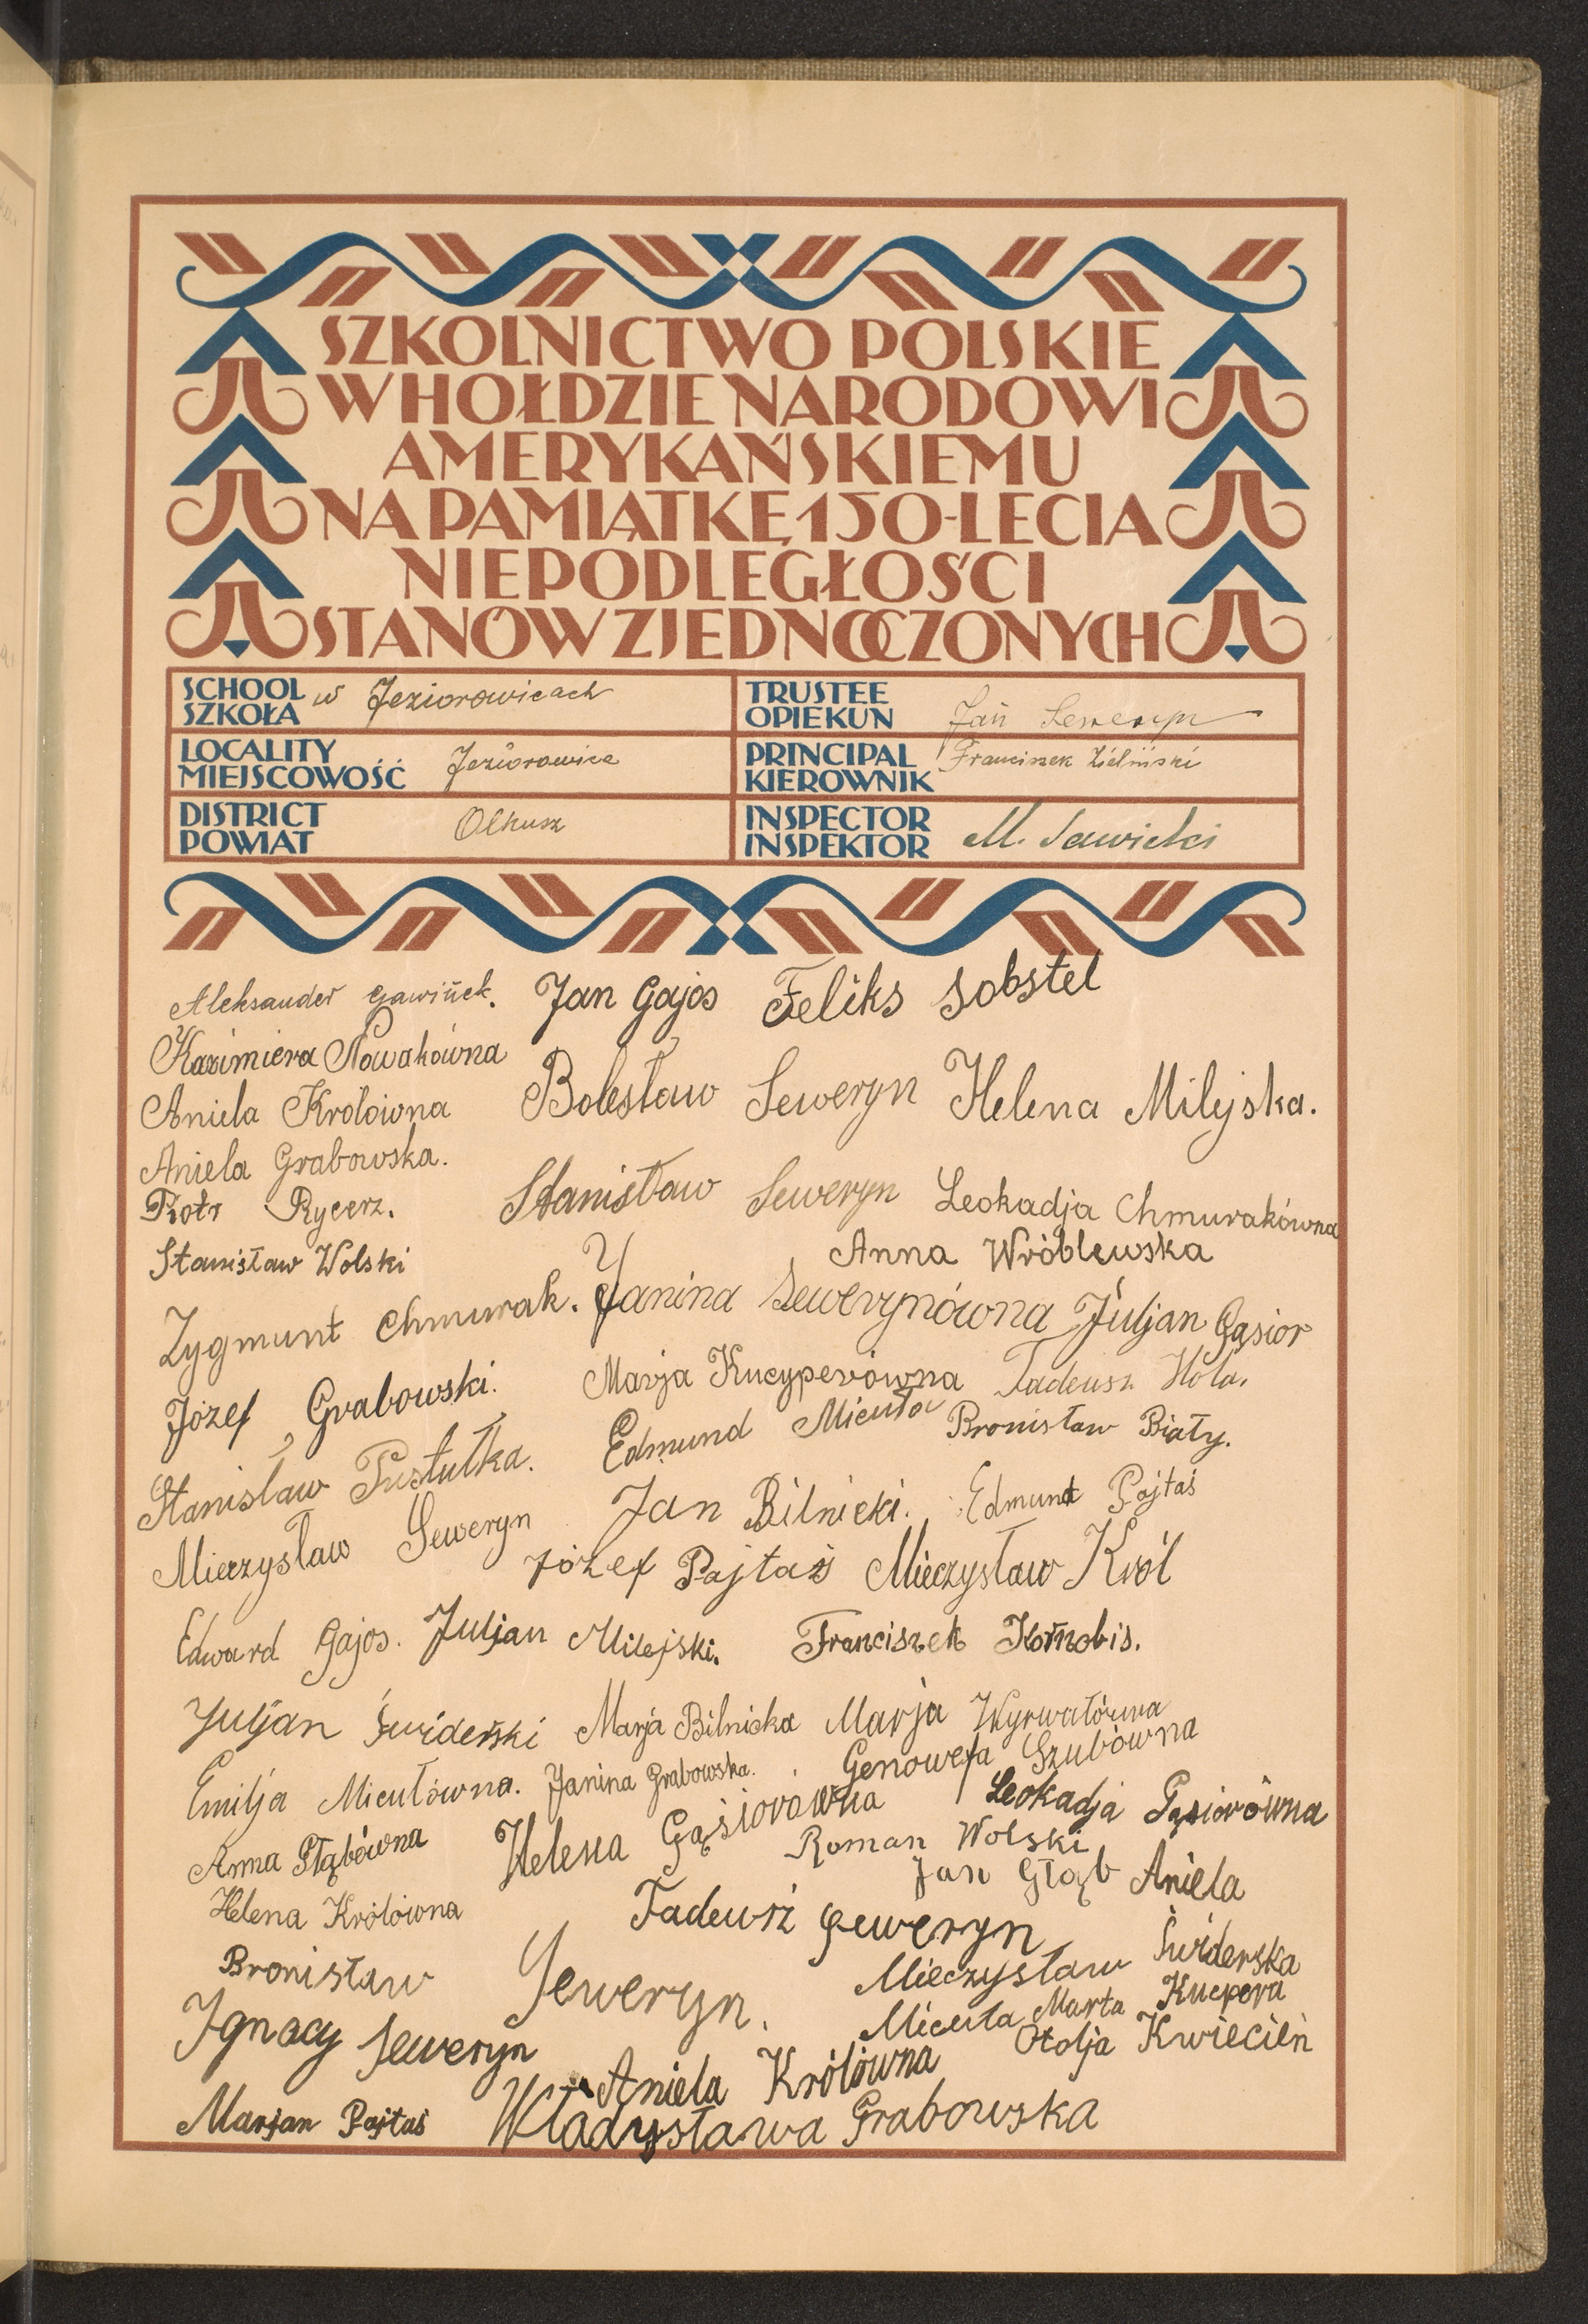 SZKOLNICTWO POLSKIE
W HOŁDZIE NARODOWI
AMERYKAŃSKIEMU
NA PAMIĄTKĘ 150-LECIA
NIEPODLEGŁOŚCI
STANÓW ZJEDNOCZONYCH
SCHOOL SZKOŁA w Jeziorowicach
TRUSTEE OPIEKUN Jan Seweryn
LOCALITY MIEJSCOWOŚĆ Jeziorowice
PRINCIPAL KIEROWNIK Franciszek Zieliński
DISTRICT POWIAT Olkusz
INSPECTOR INSPEKTOR M. Sawicki
Aleksander Gawinek. Jan Gajos Feliks Sobstel
Kazimiera Nowakówna
Aniela Królówna Bolesław Seweryn Helena Milejska.
Aniela Grabowska.
Piotr Rycerz. Stanisław Seweryn Leokadja Chmurakówna
Stanisław Wolski Anna Wróblewska
Zygmunt Chmurak. Janina Sewerynówna Juljan Gąsior
Józef Grabowski. Marja Kucyperówna Tadeusz
Stanisław Pustułka. Edmund Micuła Bronisław Biały.
Mieczysław Seweryn Jan Bilnicki. Edmund Pajtaś
Józef Pajtaś Mieczysław Król
Edward Gajos. Juljan Milejski. Franciszek Kornobis.
Juljan Świderski Marja Bilnicka Marja Wyrwałówna
Emilja Micułówna. Janina Grabowska. Genowefa Szubówna
Anna Głąbówna Helena Gąsiorówna Leokadja Gąsiorówna
Roman Wolski
Helena Królówna Tadeusz Seweryn Jan Głąb Aniela Świderska
Bronisław Seweryn. Mieczysław Micuła Marta Kucpera
Ignacy Seweryn Otolja Kwiecień
Aniela Królówna
Marjan Pajtaś Władysława Grabowska